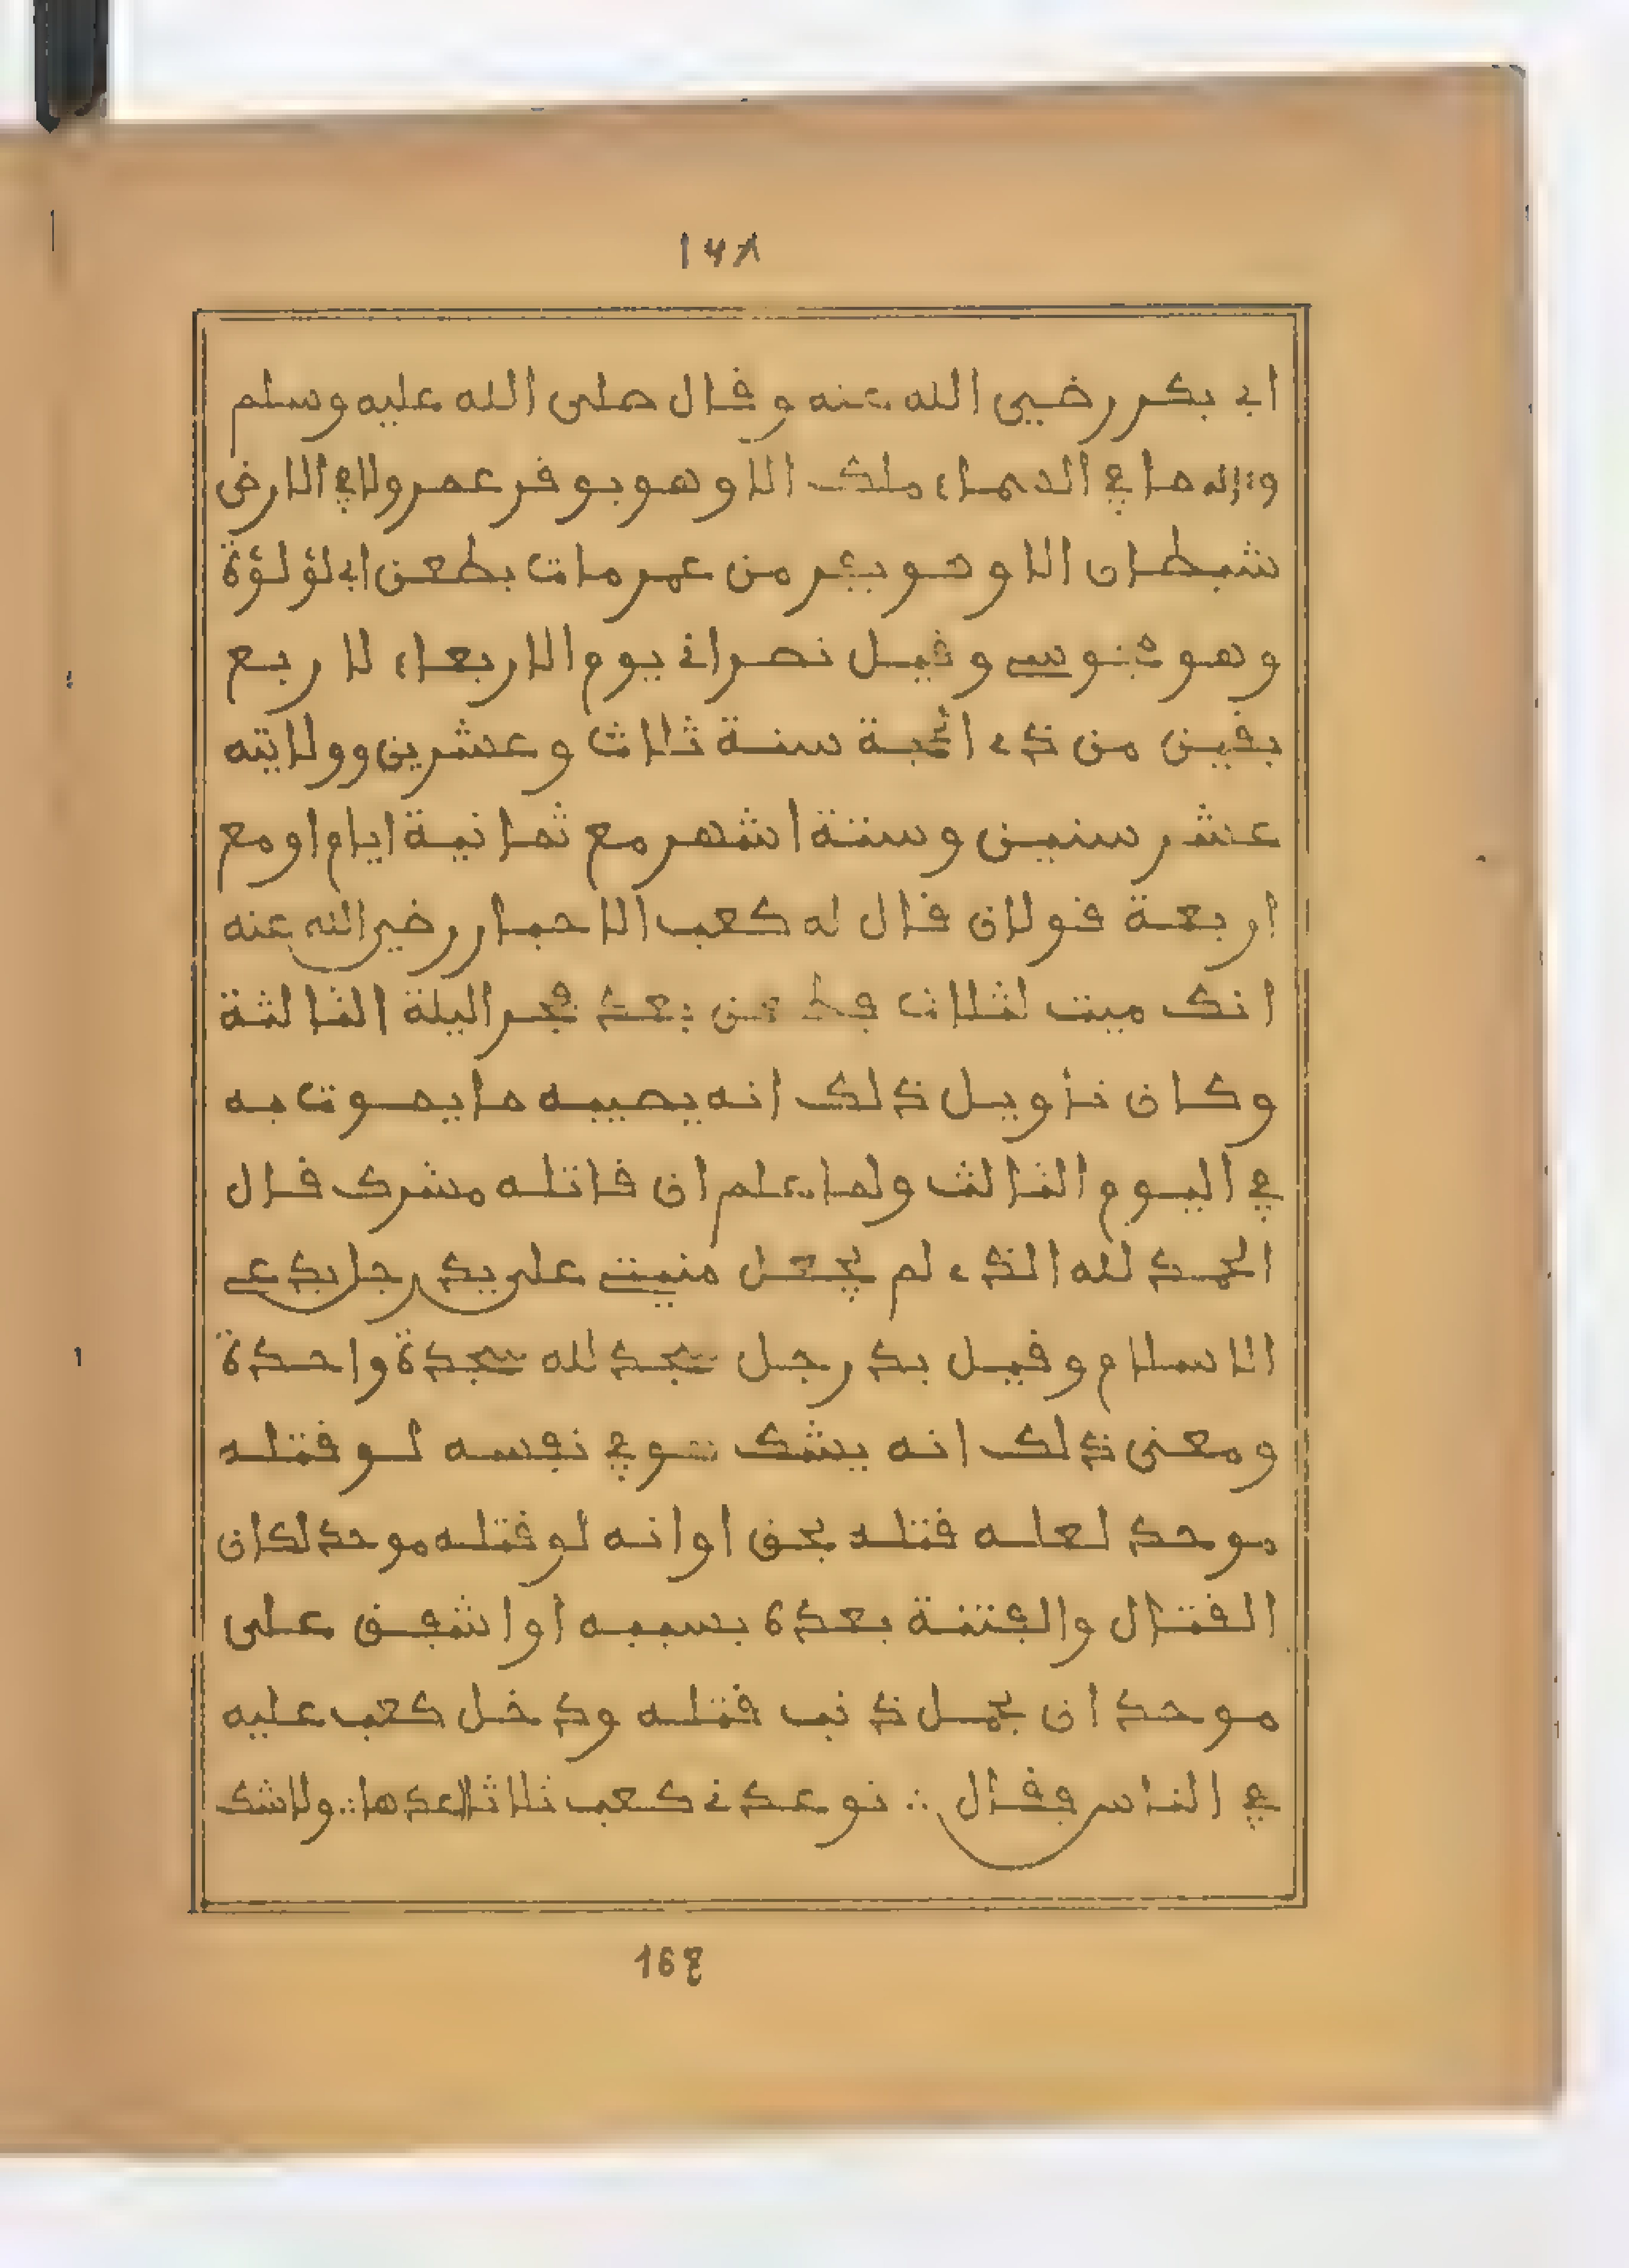 ١٦٨
ابي بكر رضي الله عنه وقال صلى الله عليه وسلم
والله ما في السماء ملك الا وهو يوقر عمر ولا في الارض
شيطان الا وهو يفر من عمر مات بطعن ابي لؤلؤة
وهو مجوسي وقيل نصراني يوم الاربعاء لاربع
بقين من ذي الحجة سنة ثلاث وعشرين وولايته
عشر سنين وستة اشهر مع ثمانية ايام او مع
اربعة قولان قال له كعب الاحبار رضي الله عنه
انك ميت لثلاث فطعن بعد فجر اليلة الثالثة
وكان تاويل ذلك انه يصيبه ما يموت به
في اليوم الثالث ولما علم ان قاتله مشرك قال
الحمد لله الذي لم يجعل منيتي على يد رجل يدعي
الاسلام وقيل يد رجل سجد لله سجدة واحدة
ومعنى ذلك انه يشك هو في نفسه لو قتله
موحد لعله قتله بحق او انه لو قتله موحد لكان
القتال والفتنة بعده بسببه او اشفق على
موحد ان يحمل ذنب قتله ودخل كعب عليه
في الناس فقال ∴ توعدني كعب ثلاثا اعدها ∴ ولا شك
168